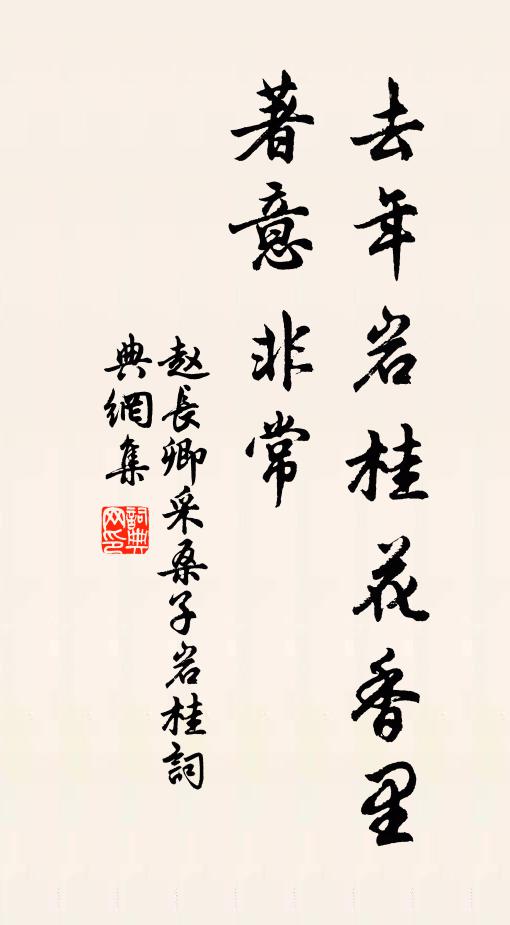 去年岩桂花香里
著意非常
赵長卿采桑子岩桂詞
典網集
詞典网印